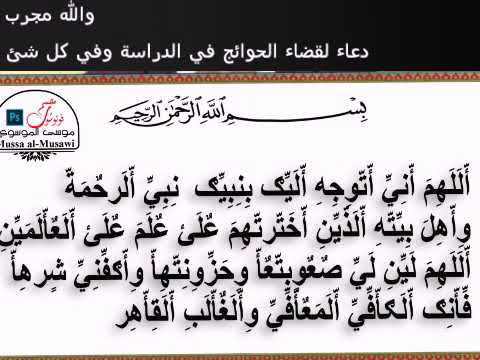 والله مجرب
دعاء لقضاء الحوائج في الدراسة وفي كل شئ
بسم الله الرحمن الرحيم
Ps
موسى الموسوي
Mussa al-Musawi
أّللَهِمَ أنِيِّ أتّوِجِهِ أّلَيِّګ بِنِبِيِّګ نِبِيِّ أّلَرحُمَةّ
وأّهِلَ بِيِّتّهِ أّلَذِيِّنِ أّخَتّرتّهِمَ عٌلَىّ عٌلَمَ عٌلَىّ أّلَعٌأّلَمَيِّنِ
أّللَهِمَ لَيِّنِ لَيِّ صٌعٌوبِتّهِأّ وحَزِونِتّهِأّ وأّګفِّنِيِّ شٍرهِأّ
فِّأّنِګ أّلَګأّفِّيِّ أّلَمَعٌأّفِّيِّ وأّلَغٌأّلَبِ أّلَقِأّهِر